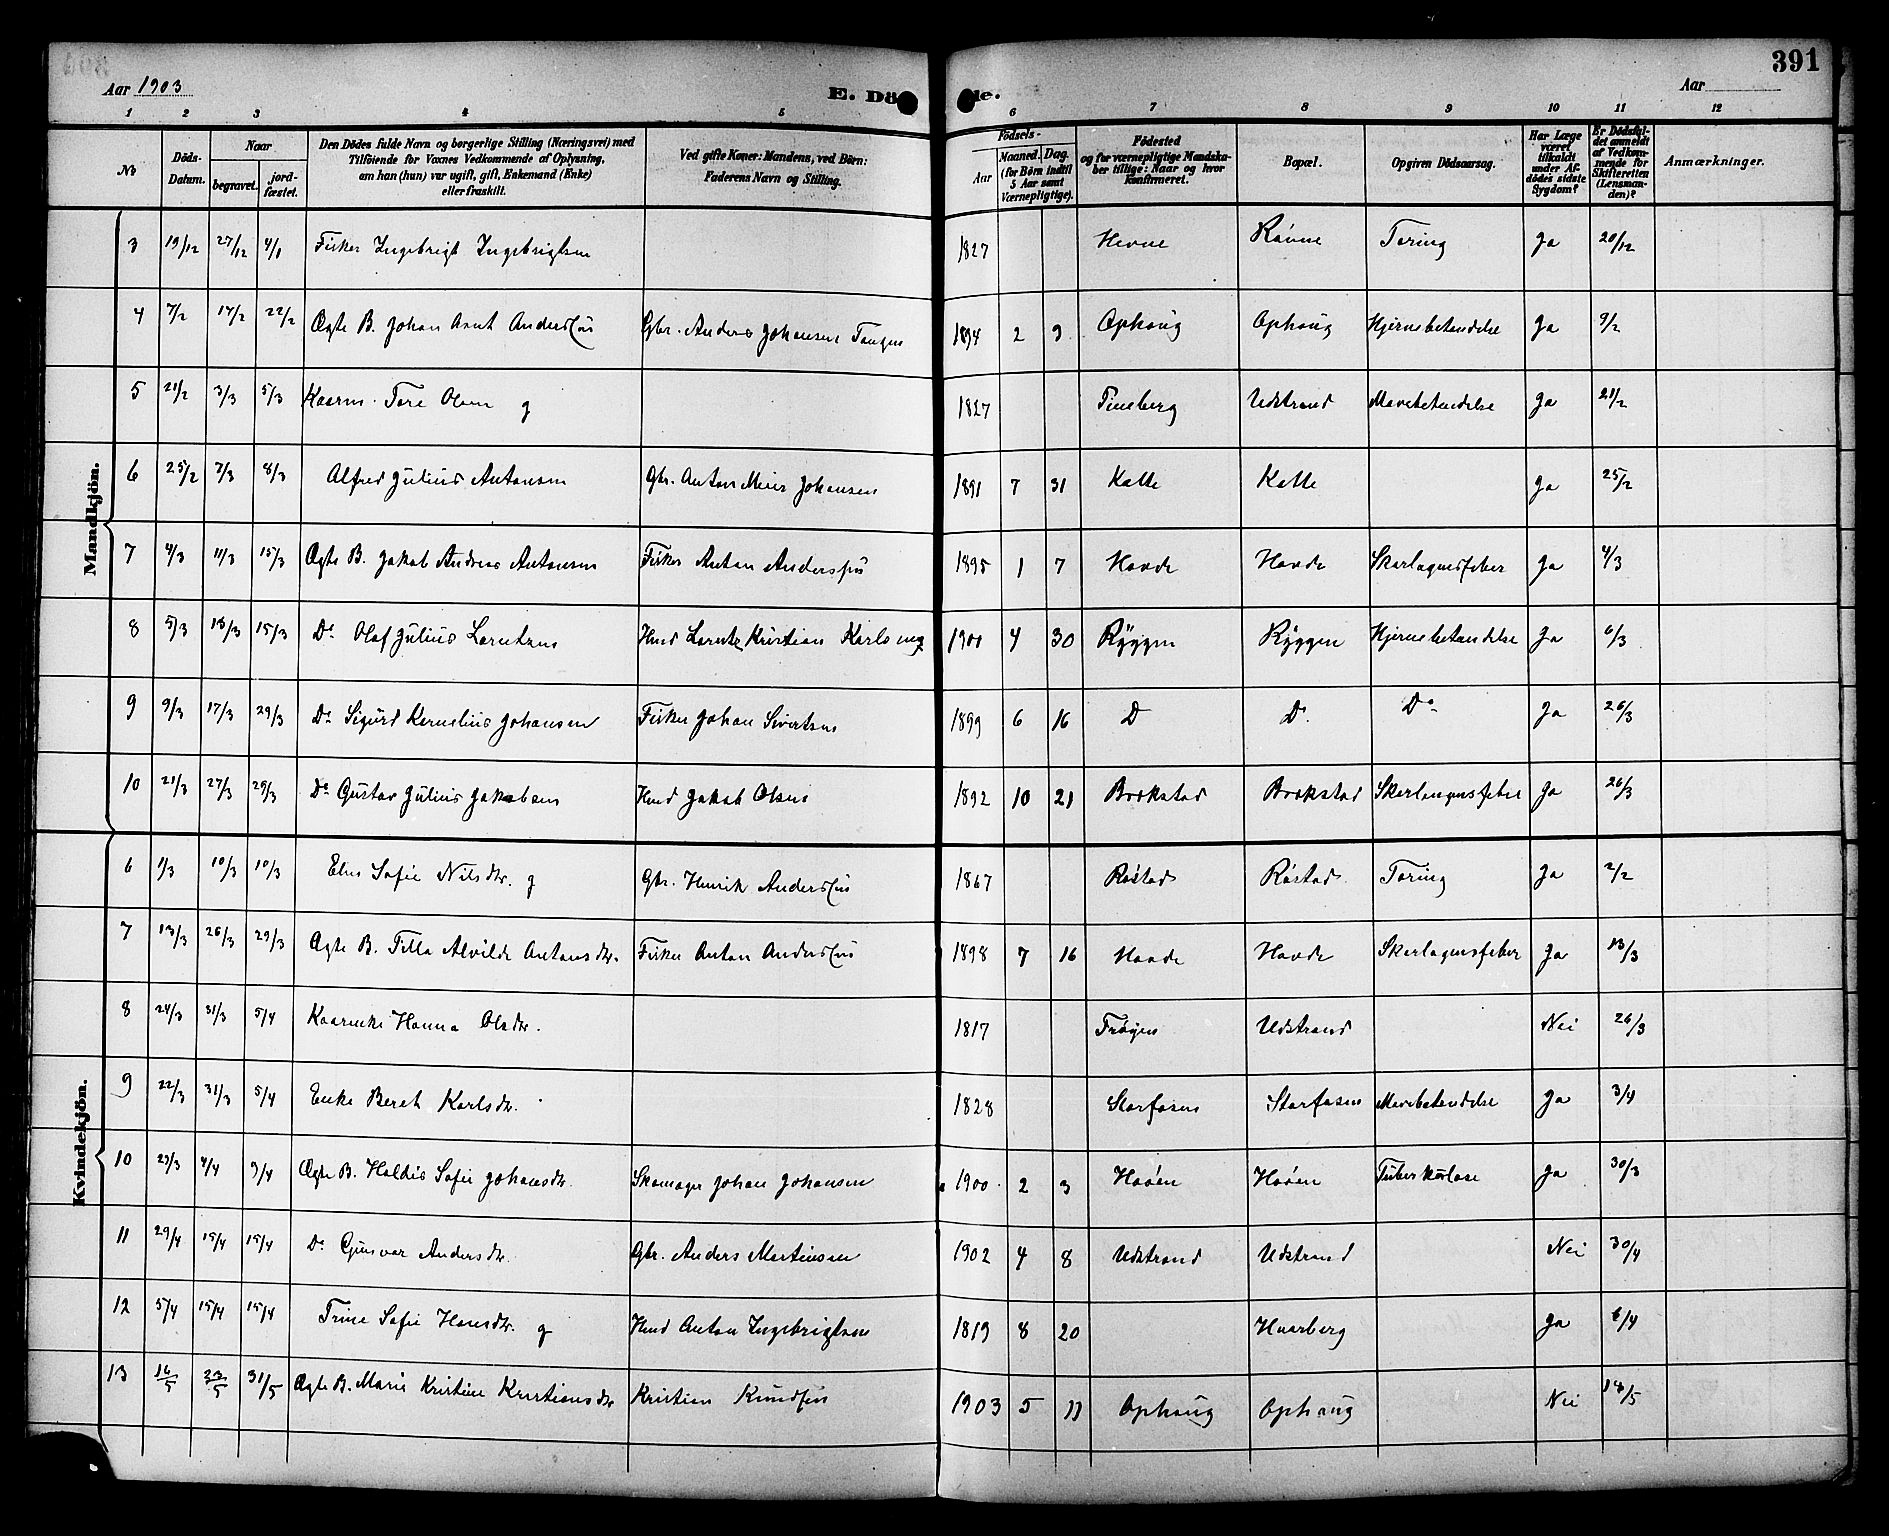 391
Aar 1903
E. Dö de.
Aar
1 2 3 4 5 6 7 8 9 10 11 12
No
Döds-Datum.
Naar
begravet.
jord-fæstet.
Den Dödes fulde Navn og borgerlige Stilling (Næringsvei) med
Tilföiende for Voxnes Vedkommende af Oplysning,
om han (hun) var ugift, gift, Enkemand (Enke)
eller fraskilt.
Ved gifte Koner: Mandens, ved Börn:
Faderens Navn og Stilling.
Födsels-
Aar
Maaned. Dag.
(for Börn indtil 5 Aar samt Værnepligtige).
Födested
og for værnepligtige Mandska-
ber tillige: Naar og hvor
konfirmeret.
Bopæl.
Opgiven Dödsaarsag.
Har Læge været tilkaldt under Af-dödes sidste Sygdom?
Er Dödsfal-det anmeldt af Vedkom-mende for Skifteretten (Lensman-den)?
Anmærkninger.
Mandkjön.
3 19/12 27/12 4/1 Fisker Ingebrigt Ingebrigtsen 1827 Hevne Råvne Tæring Ja 20/12
4 7/2 14/2 22/2 Ægte B. Johan Arnt Anderssøn Gbr. Anders Johansen Tangen 1894 2 9 Ophaug Ophaug Hjernebetændelse Ja 9/2
5 21/2 3/3 5/3 Kaarm. Tore Olsen g 1827 Udstrand Mavebetændelse Ja 21/2
6 25/2 7/3 8/3 Alfred Julius Antonsen Gbr. Anton Meier Johansen 1891 7 31 Kotte Kotte Ja 25/2
7 4/3 11/3 15/3 Ægte B. Jakob Andreas Antonsen Fisker Anton Anderssøn 1895 1 7 Hovde Hovde Skarlagensfeber Ja 4/3
8 5/3 13/3 15/3 Do Olaf Julius Lorentsen Hmd Lorentz Kristian Karlsen 1900 4 30 Ryggen Ryggen Hjernebetændelse Ja 6/3
9 9/3 17/3 29/3 Do Sigurd Kornelius Johansen Fisker Johan Sivertsen 1899 6 16 D Do. Do Ja 26/3
10 21/3 27/3 29/3 Do Gustav Julius Jakobsen Hmd Jakob Olsen 1892 10 21 Brekstad Brekstad Skarlagensfeber Ja 26/3
Kvindekjön.
6 1/3 10/3 10/3 Elen Sofie Nilsdtr. g Gbr. Henrik Anderssøn 1867 Røstad Røstad Tæring Ja 2/2
7 13/3 26/3 29/3 Ægte B. Tilla Alvilde Antonsdtr. Fisker Anton Anderssøn 1898 7 16 Hovde Hovde Skarlagensfeber Ja 13/3
8 24/3 31/3 5/4 Kaarenke Hanna Olsdtr. 1817 Frøyen Udstrand Nei 26/3
9 22/3 31/3 5/4 Enke Beret Karlsdtr. 1828 Storfosen Storfosen Mavebetændelse Ja 3/4
10 23/3 4/4 9/4 Ægte B. Haldis Sofie Johansdtr. Skomager Johan Johansen 1900 2 3 Hoøen Hoøen Tuberkulose Ja 30/3
11 29/4 15/4 15/4 Do Gunvor Andersdtr. Gbr. Anders Martinsen 1902 4 8 Udstrand Udstrand Nei 30/4
12 5/4 15/4 15/4 Trine Sofie Hansdtr. g Hmd Anton Ingebrigtsen 1819 8 20 Huarberg Ja 6/4
13 16/5 23/5 31/5 Ægte B. Marie Kristine Kristiansdtr Kristian Knudsøn 1903 5 11 Ophaug Ophaug Nei 18/5